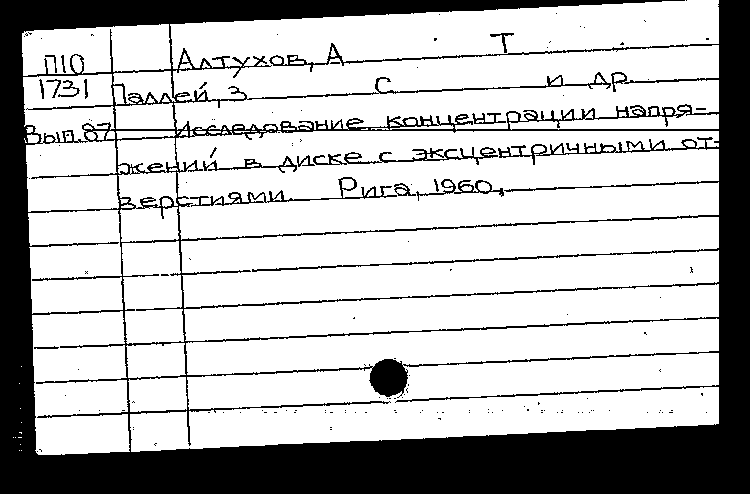 П10 Алтухов, А Т
1731 Паллей, З С и др.
Вып.87 Исследование концентрации напря-
жений в диске с эксцентричными от-
верстиями. Рига, 1960,